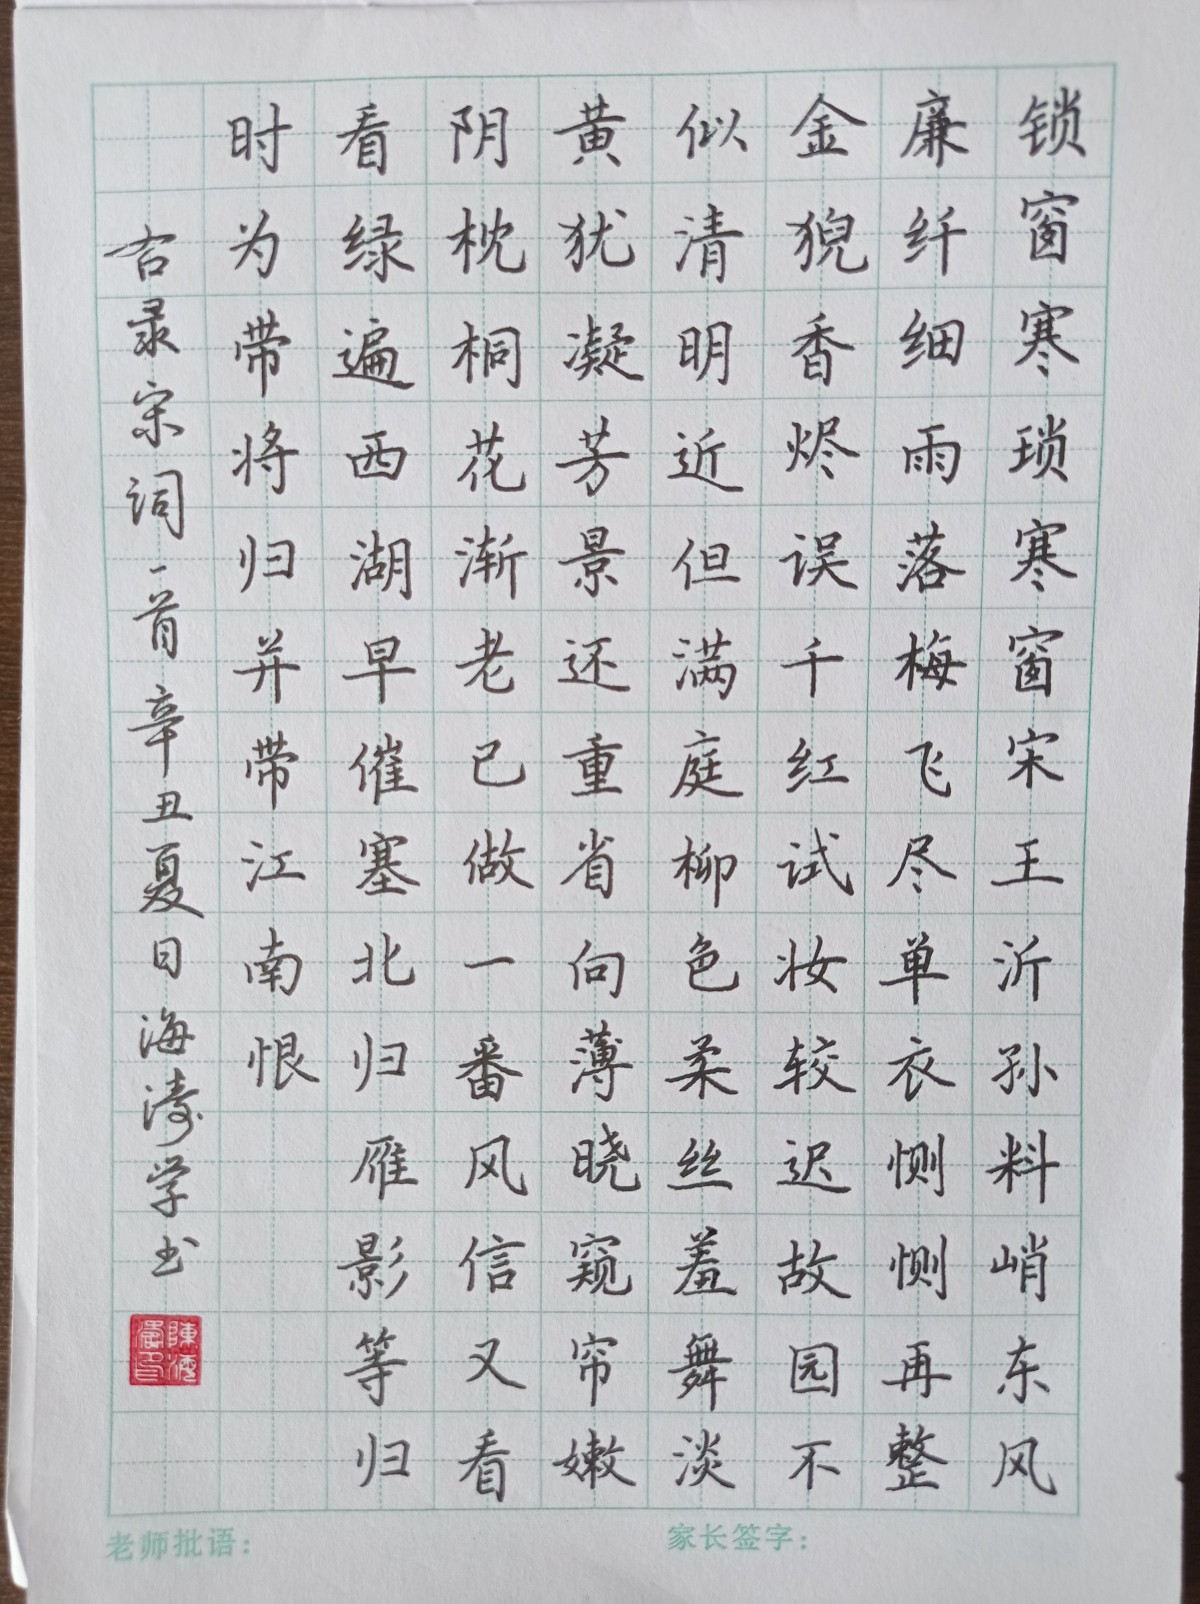 锁窗寒琐寒窗宋王沂孙料峭东风
廉纤细雨落梅飞尽单衣恻恻再整
金猊香烬误千红试妆较迟故园不
似清明近但满庭柳色柔丝羞舞淡
黄犹凝芳景还重省向薄晓窥帘嫩
阴枕桐花渐老已做一番风信又看
看绿遍西湖早催塞北归雁影等归
时为带将归并带江南恨
右录宋词一首辛丑夏日海涛学书
陈海涛印
老师批语：
家长签字：